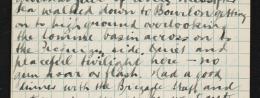 tea walked down to Bourlon getting
on to high ground overlooking
the Somme basin across on to
the side, quiet and
peaceful twilight here – no
gun roar or flash. Had a good
with the Brigade Staff and